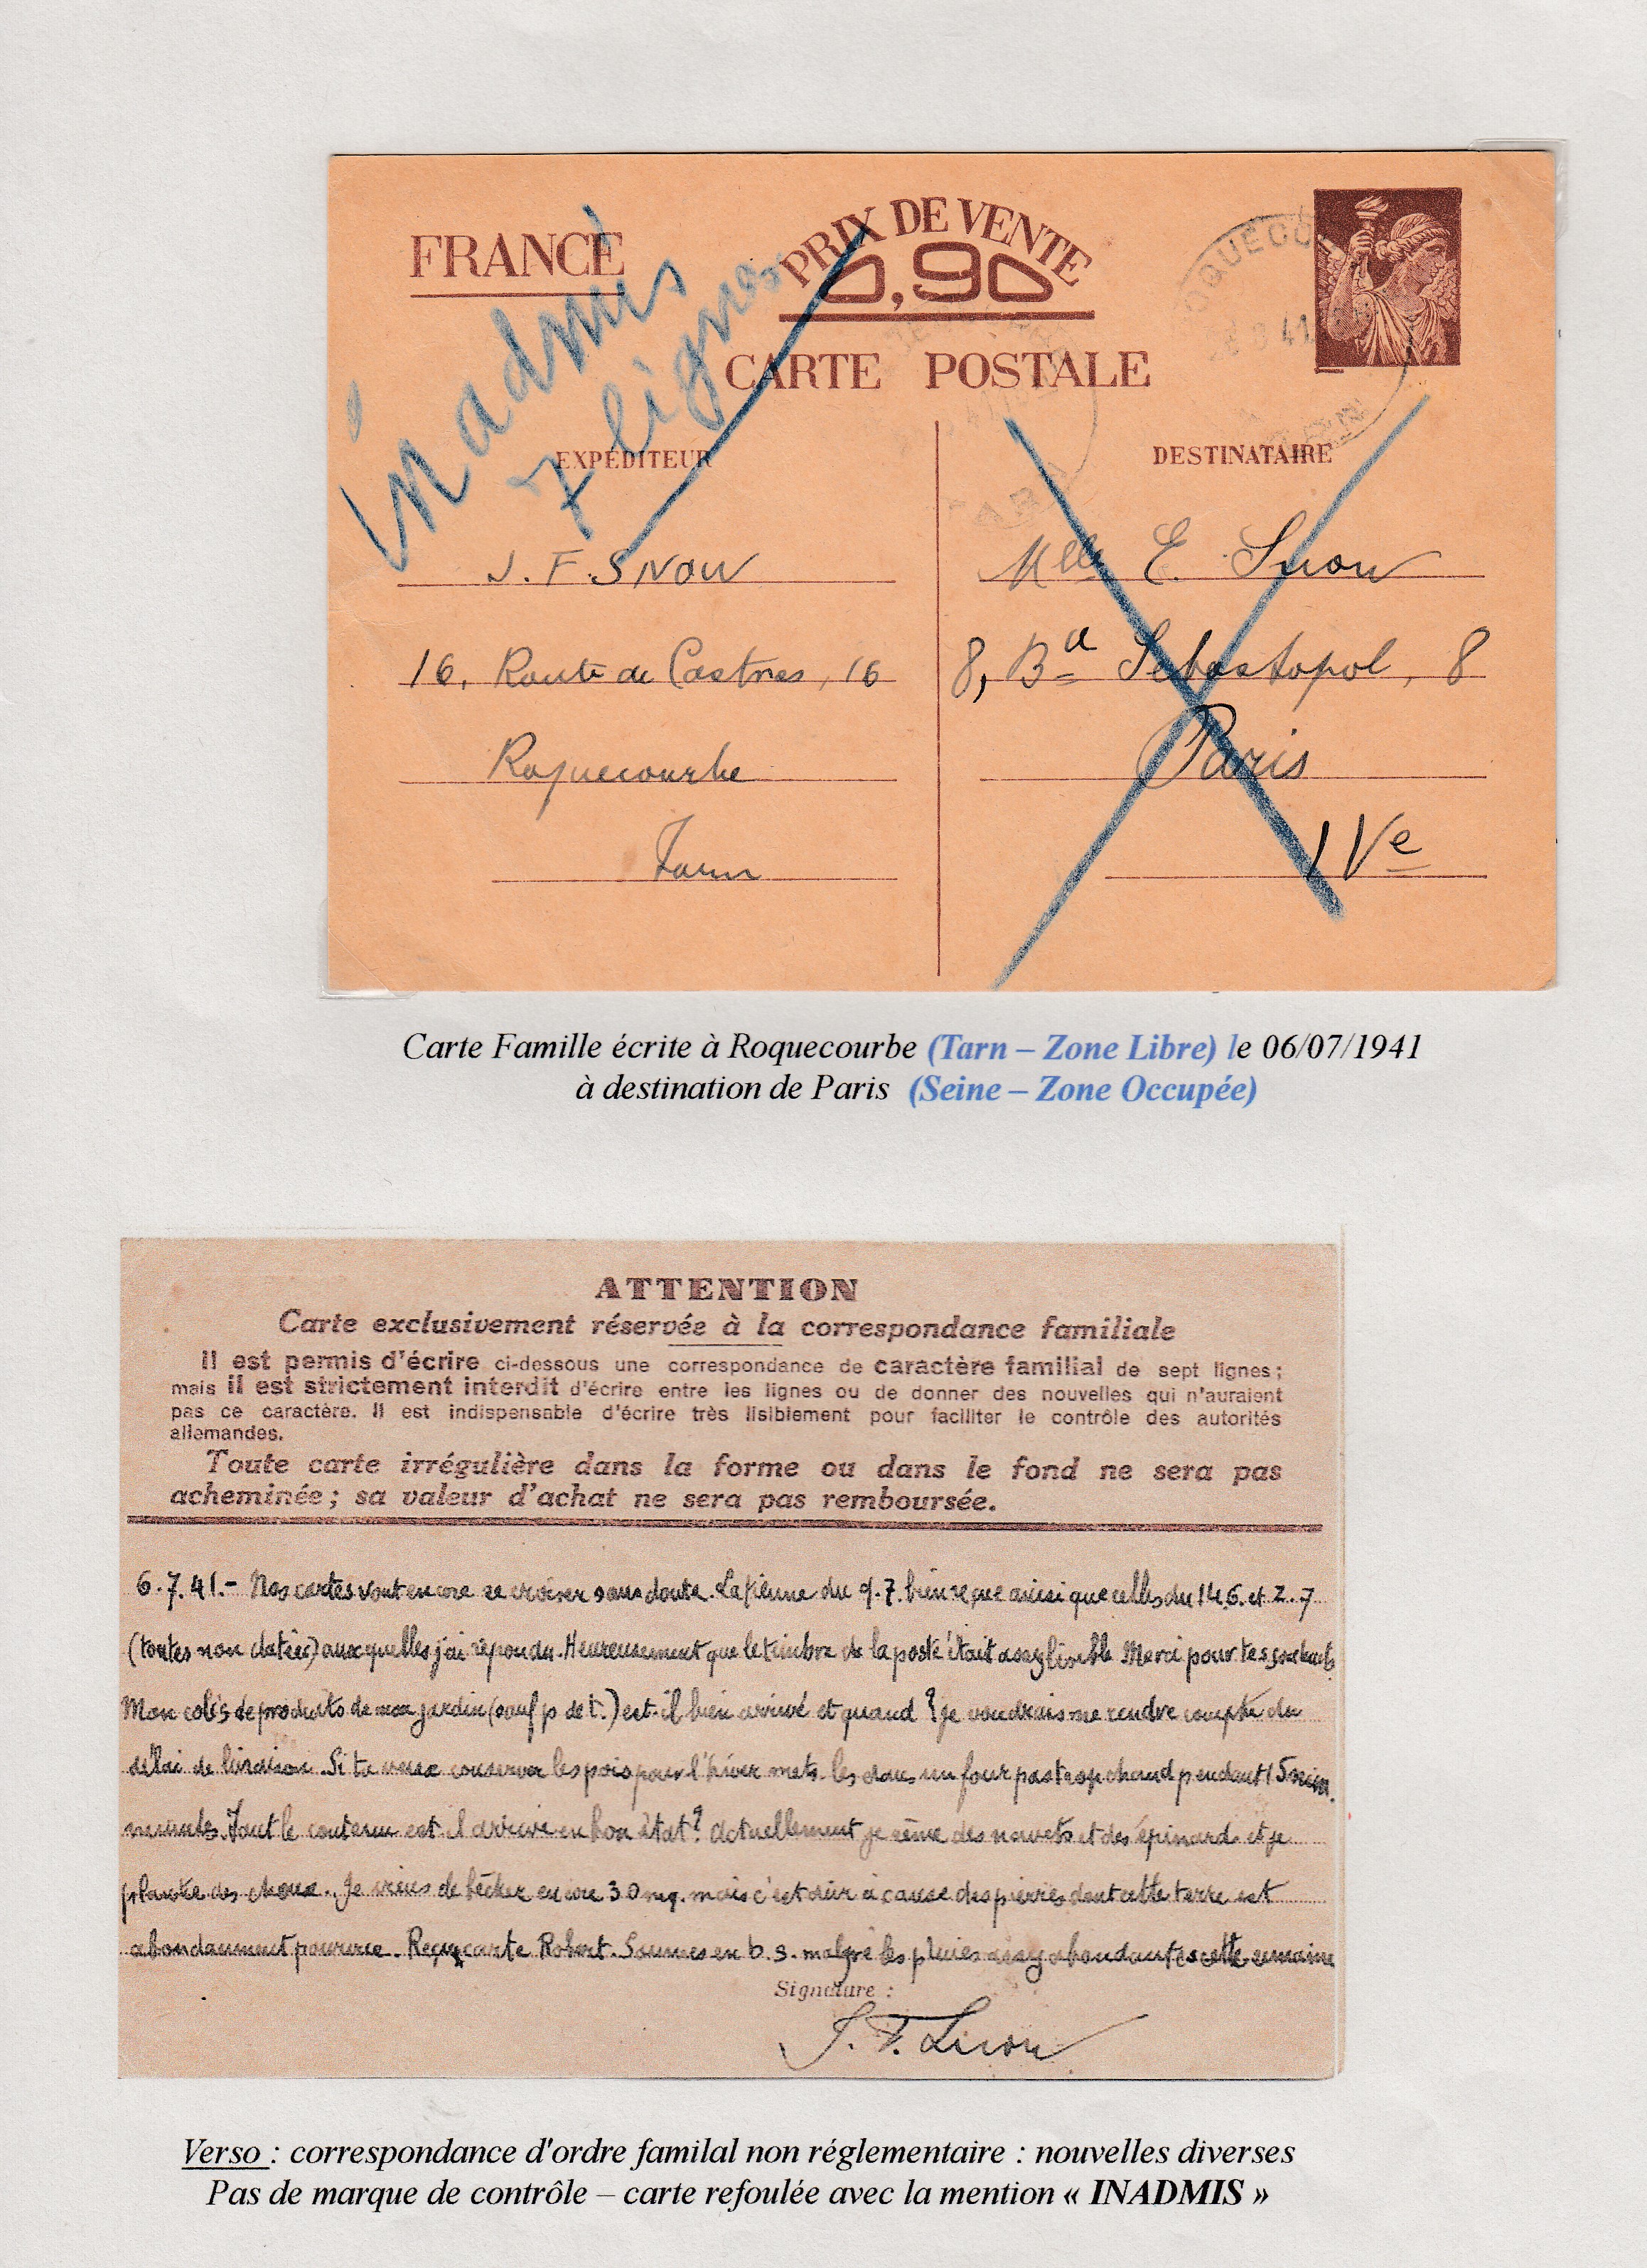 FRANCE
PRIX DE VENTE
0,90
CARTE POSTALE
inadmis
7 lignes
ROQUECO
41
TARN
EXPÉDITEUR
DESTINATAIRE
J. F. SNOW
Mlle E. Snow
16, Route de Castres, 16
8, Bd Sébastopol, 8
Roquecourbe
Paris
Tarn
IVe
Carte Famille écrite à Roquecourbe (Tarn – Zone Libre) le 06/07/1941
à destination de Paris (Seine – Zone Occupée)
ATTENTION
Carte exclusivement réservée à la correspondance familiale
Il est permis d'écrire ci-dessous une correspondance de caractère familial de sept lignes;
mais il est strictement interdit d'écrire entre les lignes ou de donner des nouvelles qui n'auraient
pas ce caractère. Il est indispensable d'écrire très lisiblement pour faciliter le contrôle des autorités
allemandes.
Toute carte irrégulière dans la forme ou dans le fond ne sera pas
acheminée; sa valeur d'achat ne sera pas remboursée.
6.7.41.- Nos cartes vont encore se croiser sans doute. La tienne du 9.7. bien reçue ainsi que celles du 14.6. et 2.7
(toutes non datées) auxquelles j'ai répondu. Heureusement que le timbre de la poste était assez lisible Merci pour tes souhaits
Mon colis de produits de mon jardin (sauf p de t.) est-il bien arrivé et quand? je voudrais me rendre compte du
délai de livraison. Si tu veux conserver les pois pour l'hiver mets-les dans un four pas trop chaud pendant 15
minutes. Tout le contenu est-il arrivé en bon état? Actuellement je sème des navets et des épinards et je
plante des choux. Je viens de bêcher encore 30 mq. mais c'est dur à cause des pierres dont cette terre est
abondamment pourvue. Reçu carte Robert. Sommes en b. s. malgré les pluies assez abondantes cette semaine
Signature :
J. F. Snow
Verso : correspondance d'ordre familal non réglementaire : nouvelles diverses
Pas de marque de contrôle – carte refoulée avec la mention « INADMIS »